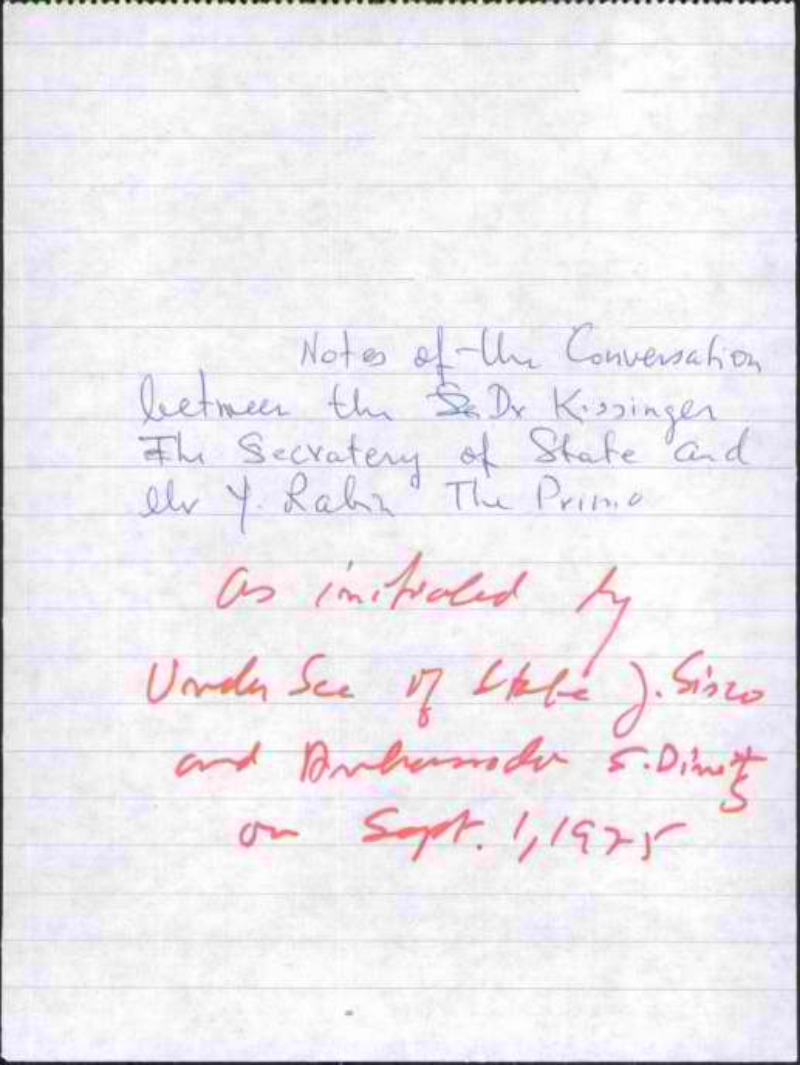 Notes of the Conversation
between the Se Dr Kissinger
The Secratery of State and
Mr Y. Rabin The Prime
as initialed by
Under Sec of State J. Sisco
and Ambassador S. Dinitz
on Sept. 1, 1975